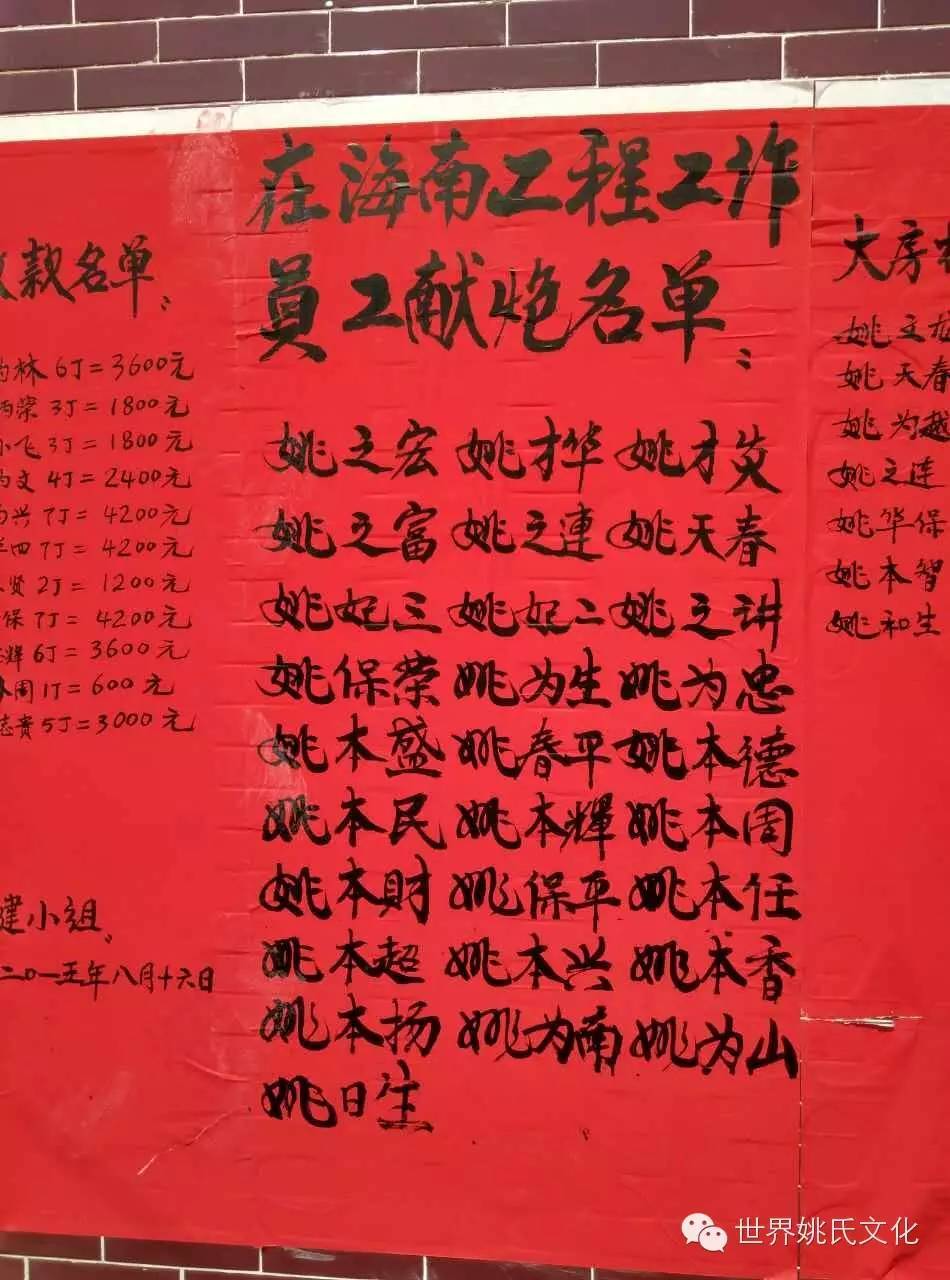 款名单:
林 6丁=3600元
荣 3丁=1800元
小飞 3丁=1800元
文 4丁=2400元
兴 7丁=4200元
四 7丁=4200元
贤 2丁=1200元
保 7丁=4200元
辉 6丁=3600元
周 1丁=600元
志贵 5丁=3000元
建小组
二0一五年八月十六日
在海南工程工作
员工献炮名单:
姚之宏 姚才华 姚才
姚之富 姚之連 姚天春
姚妃三 姚妃二 姚之讲
姚保荣 姚为生 姚为忠
姚本盛 姚春平 姚本德
姚本民 姚本輝 姚本周
姚本財 姚保平 姚本任
姚本超 姚本兴 姚本香
姚本扬 姚为南 姚为山
姚日生
大房
姚之
姚天春
姚为越
姚之连
姚华保
姚本智
姚和生
世界姚氏文化